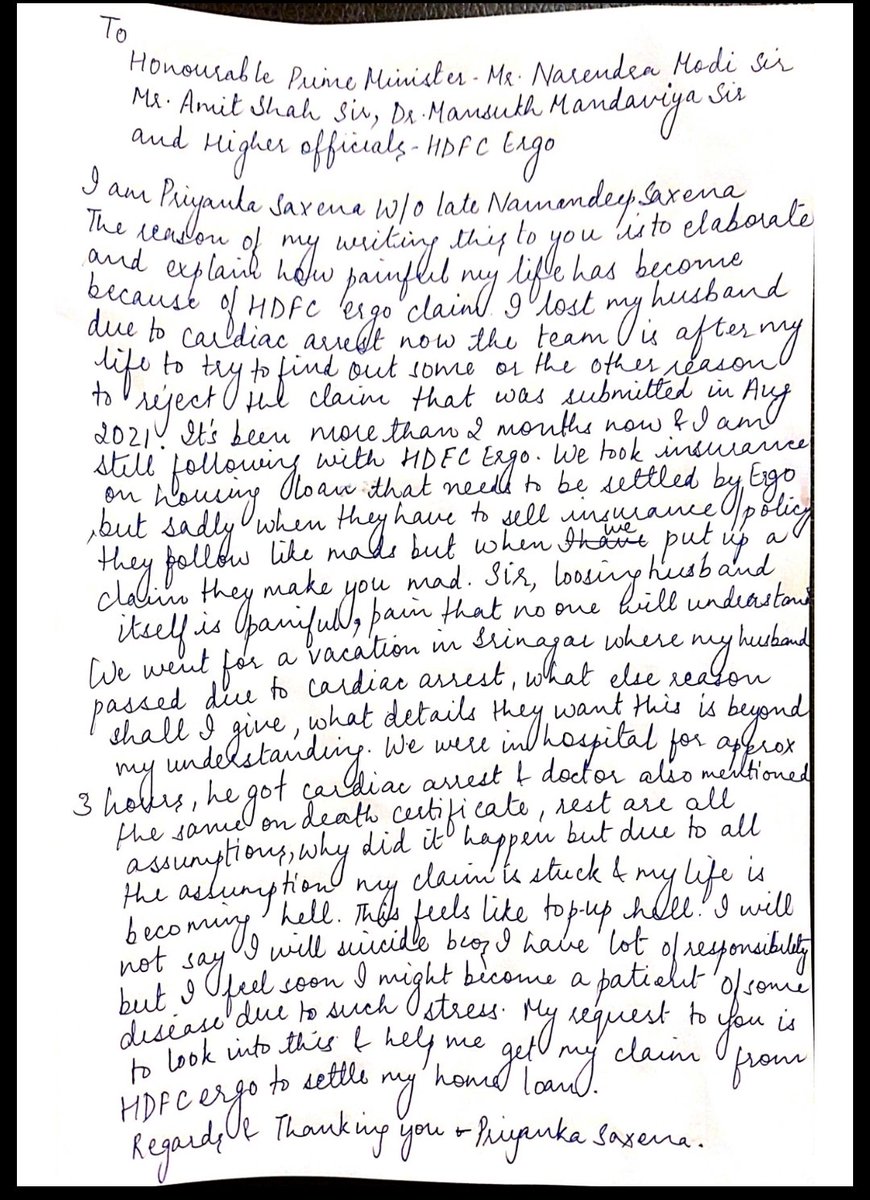 To
Honourable Prime Minister - Mr. Narendra Modi Sir
Mr. Amit Shah Sir, Dr. Mansukh Mandaviya Sir
and Higher officials - HDFC Ergo
I am Priyanka Saxena W/o late Namandeep Saxena
The reason of my writing this to you is to elaborate
and explain how painful my life has become
because of HDFC ergo claim. I lost my husband
due to cardiac arrest now the team is after my
life to try to find out some or the other reason
to reject the claim that was submitted in Aug
2021. It's been more than 2 months now & I am
still following with HDFC Ergo. We took insurance
on housing loan that needs to be settled by Ergo
, but sadly when they have to sell insurance/policy
they follow like mads but when I have we put up a
claim they make you mad. Sir, loosing husband
itself is painful, pain that no one will understand
We went for a vacation in Srinagar where my husband
passed due to cardiac arrest, what else reason
shall I give, what details they want this is beyond
my understanding. We were in hospital for approx
3 hours, he got cardiac arrest & doctor also mentioned
the same on death certificate, rest are all
assumptions, why did it happen but due to all
the assumption my claim is stuck & my life is
becoming hell. This feels like top-up hell. I will
not say I will suicide bcoz I have lot of responsibility
but I feel soon I might become a patient of some
disease due to such stress. My request to you is
to look into this & help me get my claim from
HDFC ergo to settle my home loan.
Regards & Thanking you - Priyanka Saxena.